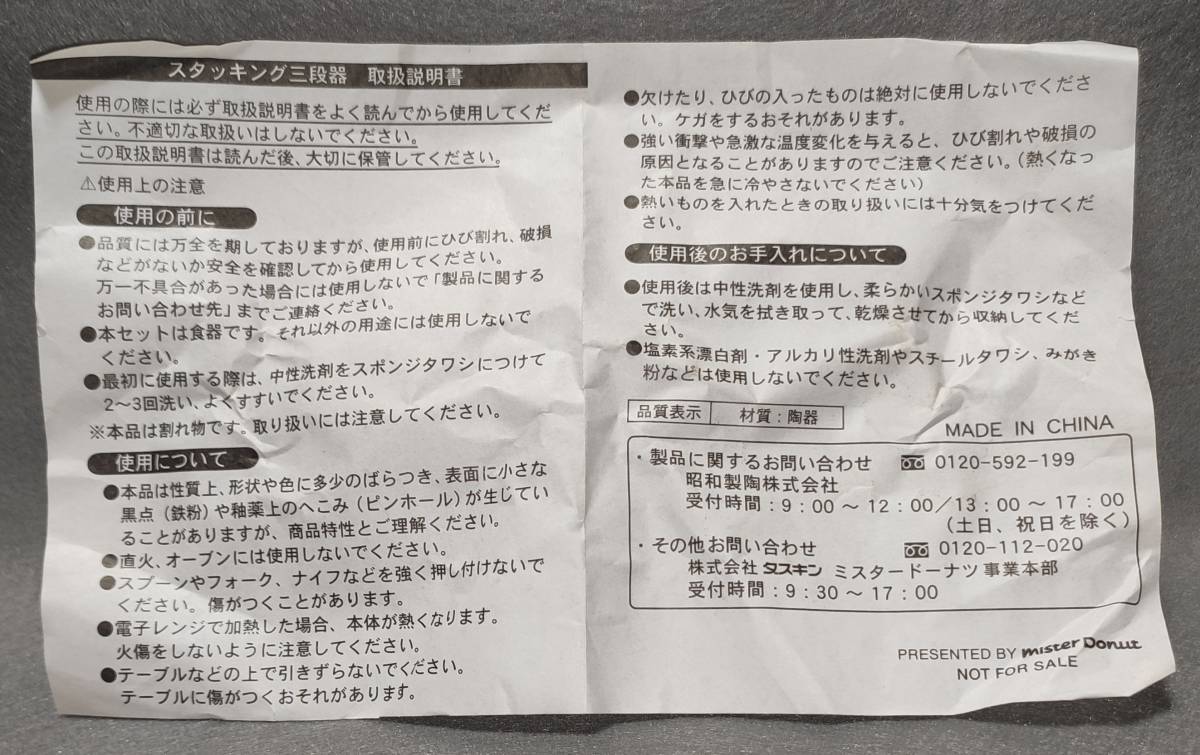 スタッキング三段器　取扱説明書
使用の際には必ず取扱説明書をよく読んでから使用してくだ
さい。不適切な取扱いはしないでください。
この取扱説明書は読んだ後、大切に保管してください。
⚠使用上の注意
使用の前に
●品質には万全を期しておりますが、使用前にひび割れ、破損
などがないか安全を確認してから使用してください。
万一不具合があった場合には使用しないで「製品に関する
お問い合わせ先」までご連絡ください。
●本セットは食器です。それ以外の用途には使用しないで
ください。
●最初に使用する際は、中性洗剤をスポンジタワシにつけて
2〜3回洗い、よくすすいでください。
※本品は割れ物です。取り扱いには注意してください。
使用について
●本品は性質上、形状や色に多少のばらつき、表面に小さな
黒点（鉄粉）や釉薬上のへこみ（ピンホール）が生じてい
ることがありますが、商品特性とご理解ください。
●直火、オーブンには使用しないでください。
●スプーンやフォーク、ナイフなどを強く押し付けないで
ください。傷がつくことがあります。
●電子レンジで加熱した場合、本体が熱くなります。
火傷をしないように注意してください。
●テーブルなどの上で引きずらないでください。
テーブルに傷がつくおそれがあります。
●欠けたり、ひびの入ったものは絶対に使用しないでくださ
い。ケガをするおそれがあります。
●強い衝撃や急激な温度変化を与えると、ひび割れや破損の
原因となることがありますのでご注意ください。（熱くなっ
た本品を急に冷やさないでください）
●熱いものを入れたときの取り扱いには十分気をつけてくだ
さい。
使用後のお手入れについて
●使用後は中性洗剤を使用し、柔らかいスポンジタワシなど
で洗い、水気を拭き取って、乾燥させてから収納してくだ
さい。
●塩素系漂白剤・アルカリ性洗剤やスチールタワシ、みがき
粉などは使用しないでください。
品質表示　材質：陶器
MADE IN CHINA
・製品に関するお問い合わせ　0120-592-199
昭和製陶株式会社
受付時間：9：00 〜 12：00／13：00 〜 17：00
（土日、祝日を除く）
・その他お問い合わせ　0120-112-020
株式会社 ダスキン ミスタードーナツ 事業本部
受付時間：9：30 〜 17：00
PRESENTED BY mister Donut
NOT FOR SALE